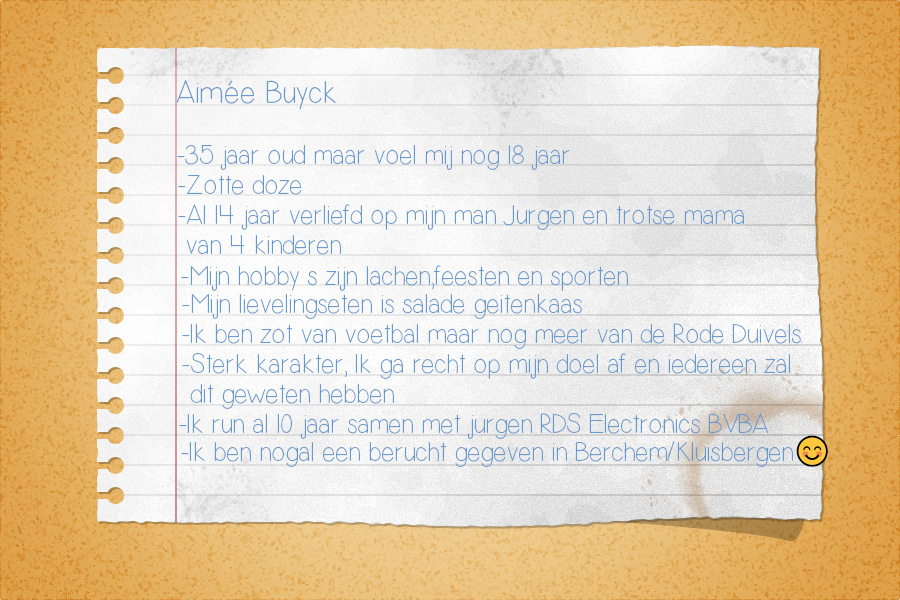 Aimée Buyck
-35 jaar oud maar voel mij nog 18 jaar
-Zotte doze
-Al 14 jaar verliefd op mijn man Jurgen en trotse mama
van 4 kinderen
-Mijn hobby s zijn lachen,feesten en sporten
-Mijn lievelingseten is salade geitenkaas
-Ik ben zot van voetbal maar nog meer van de Rode Duivels
-Sterk karakter, Ik ga recht op mijn doel af en iedereen zal
dit geweten hebben
-Ik run al 10 jaar samen met jurgen RDS Electronics BVBA
-Ik ben nogal een berucht gegeven in Berchem/Kluisbergen😊